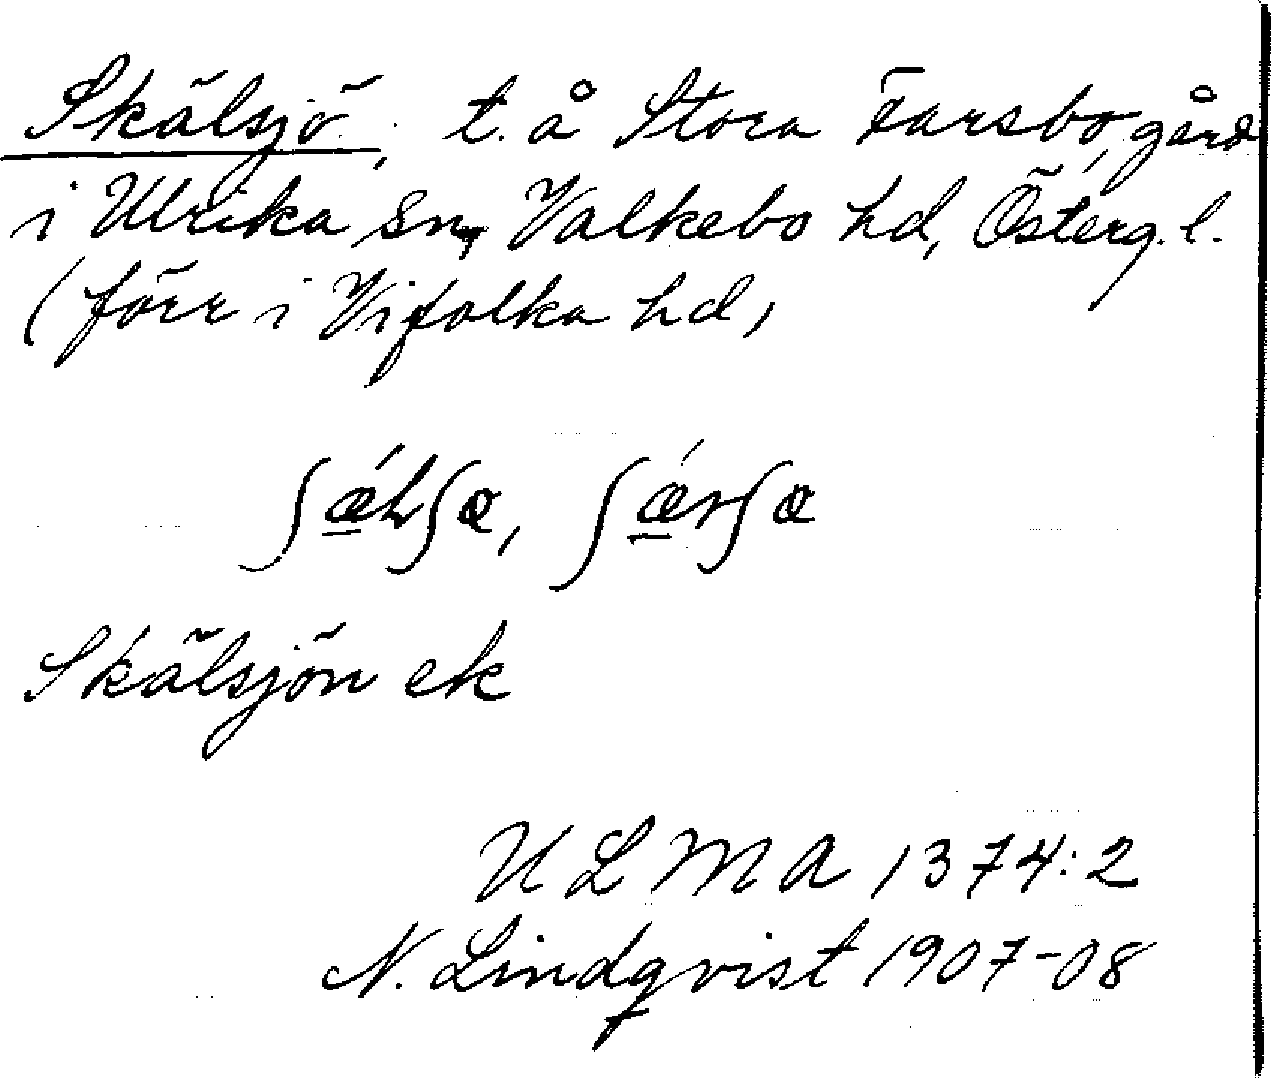 Skälsjö, t. å Stora Farsbo, gård
i Ulrika sn, Valkebo hd, Österg. l.
(förr i Vifolka hd,
ʃǽlʃɶ, ʃǽrʃɶ
Skälsjön ek
ULMA 1374:2
N. Lindqvist 1907-08